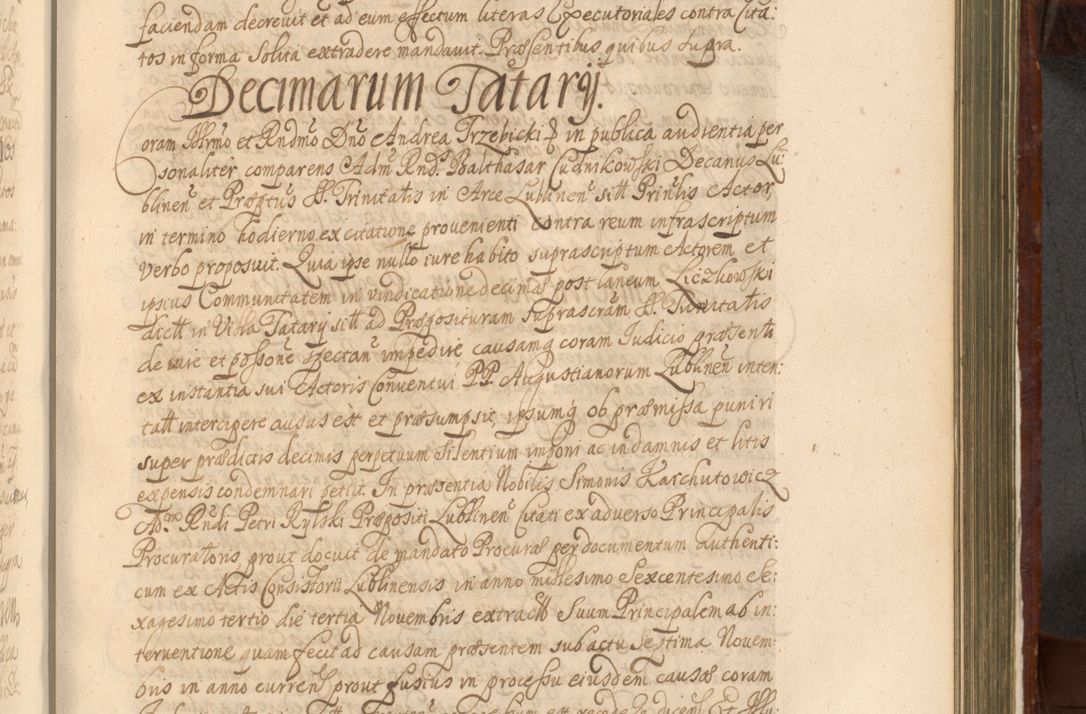 faciendam decrevit et ad eum effectum literas Executoriales contra Cita:
tos in forma solita extradere mandavit. Præsentibus quibus supra.
Decimarum Tatarÿ.
Coram Illrmo et Rndmo Dno Andrea Trzebicki in publica audientia per
sonaliter comparens Adm Rnd. Balthasar Cudnikowski Decanus Lu:
blinen et Præptus S. Trinitatis in Arce Lublinen sitt Prinlis Actor,
in termino hodierno ex citatione provenienti contra reum infrascriptum
verbo proposuit. Quia ipse nullo iure habito suprascriptum Actorem et
ipsius Communitatem in vindicatione decimæ post laneum Liczkowski
dictt in Villa Tatary sitt ad Præposituram suprascram S. Trinitatis
de iure et possone spectan impedire causamq coram Iudicio præsenti
ex instantia sui Actoris Conventui P.P. Augustianorum Lublinen inten:
tatt intercipere ausus est et præsumpsit, ipsumq ob præmissa puniri
super prædictis decimis perpetuum silentium imponi ac in damnis et litis
expensis condemnari petiit. In præsentia Nobilis Simonis Karchutowicz
Adm Rndi Petri Rylski Præpositi Lublinen Citati ex adverso Principalis
Procuratoris prout docuit de mandato Procuræ per documentum authenti:
cum ex Actis Consistorii Lublinensis in anno millesimo Sexcentesimo Se:
xagesimo tertio die tertia Novembris extractt Suum Principalem ab in:
terventione quam fecit ad causam præsentem sub actu Septima Novem:
bris in anno curren prout fusius in processu eiusdem causæ coram